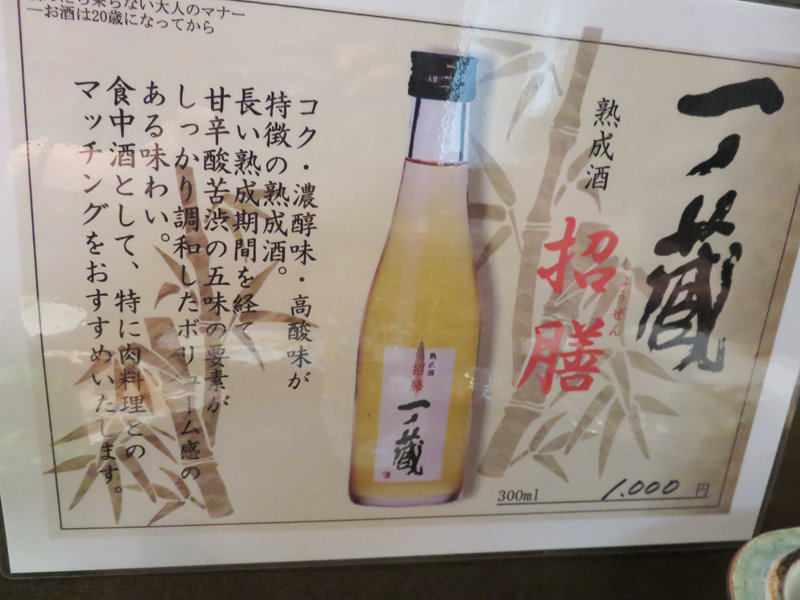 乗らない大人のマナー
―お酒は20歳になってから
一ノ蔵
熟成酒
招膳
しょうぜん
コク・濃醇味・高酸味が
特徴の熟成酒。
長い熟成期間を経て
甘辛酸苦渋の五味の要素が
しっかり調和したボリューム感の
ある味わい。
食中酒として、特に肉料理との
マッチングをおすすめいたします。
熟成酒
招膳
一ノ蔵
300ml
1.000円